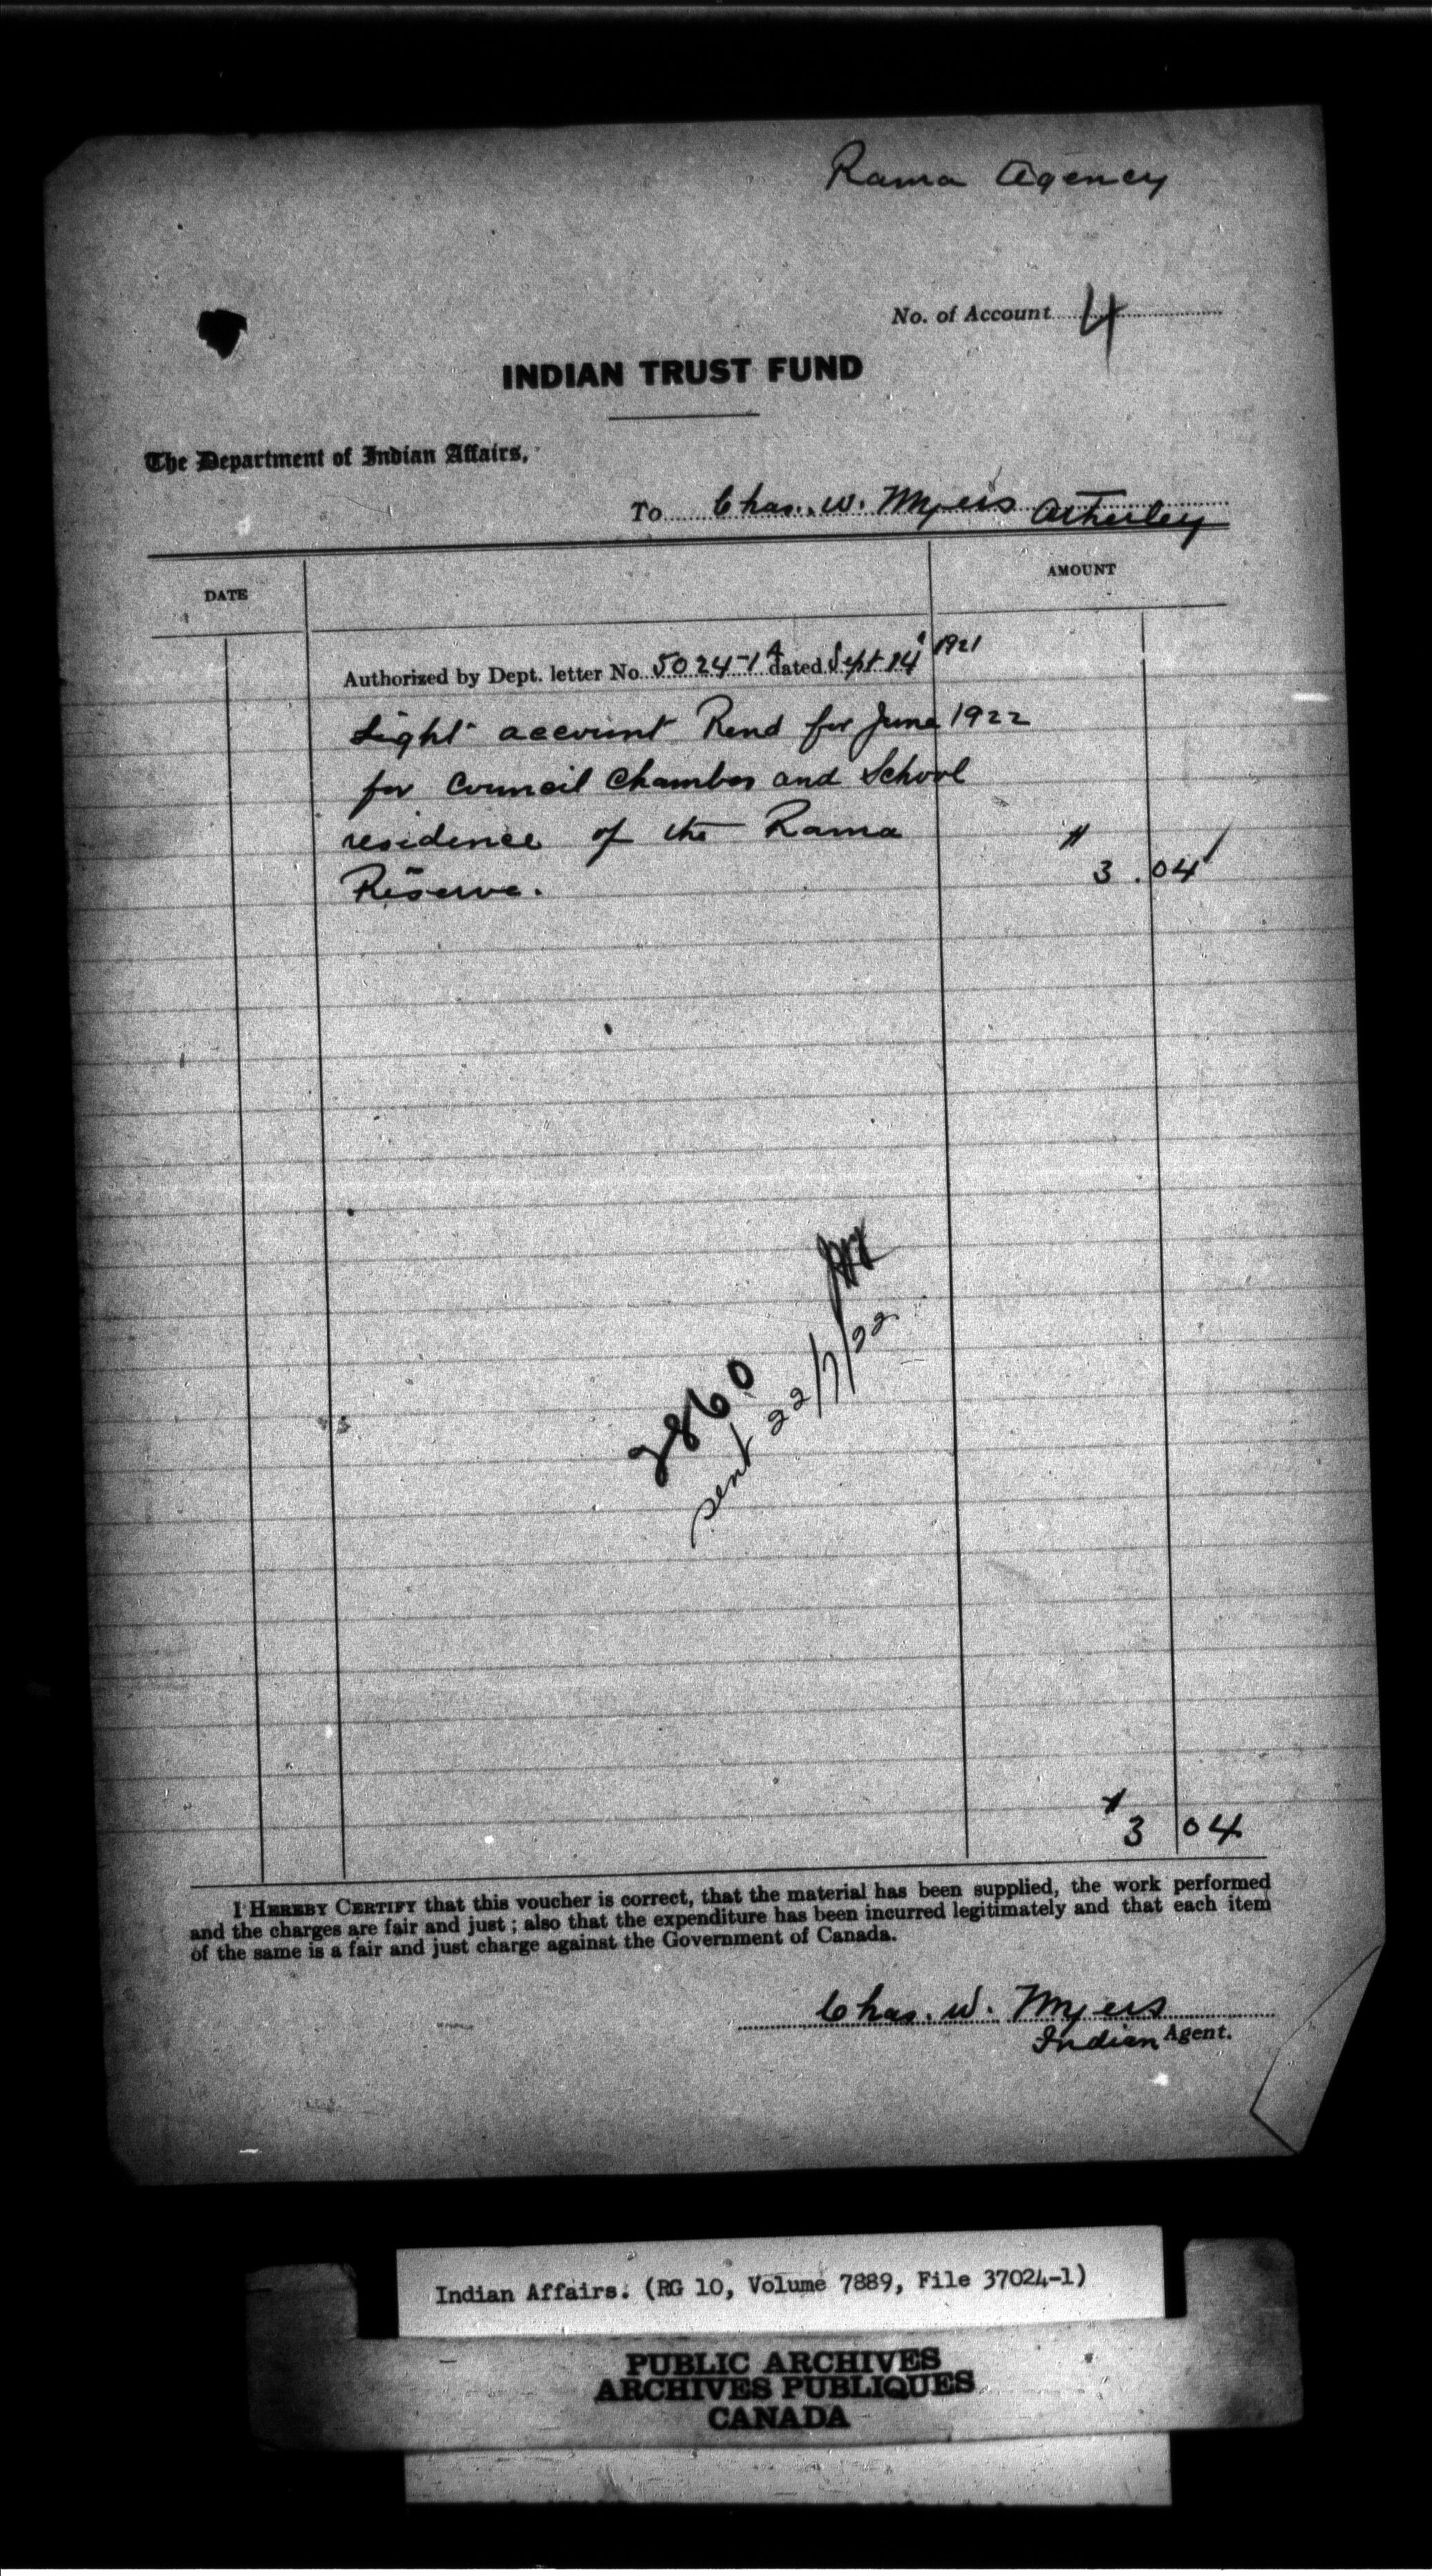 Rama Agency
No. of Account 4
INDIAN TRUST FUND
The Department of Indian Affairs,
To Chas. W. Myers Atherley
DATE
AMOUNT
Authorized by Dept. letter No. 5024-1A dated Sept 14 1921
Light account Rend for June 1922
for Council Chamber and School
residence of the Rama
Reserve. $3.04
2860
sent 22/7/22
$3 04
I HEREBY CERTIFY that this voucher is correct, that the material has been supplied, the work performed
and the charges are fair and just; also that the expenditure has been incurred legitimately and that each item
of the same is a fair and just charge against the Government of Canada.
Chas. W. Myers
Indian Agent.
Indian Affairs. (RG 10, Volume 7889, File 37024-1)
PUBLIC ARCHIVES
ARCHIVES PUBLIQUES
CANADA